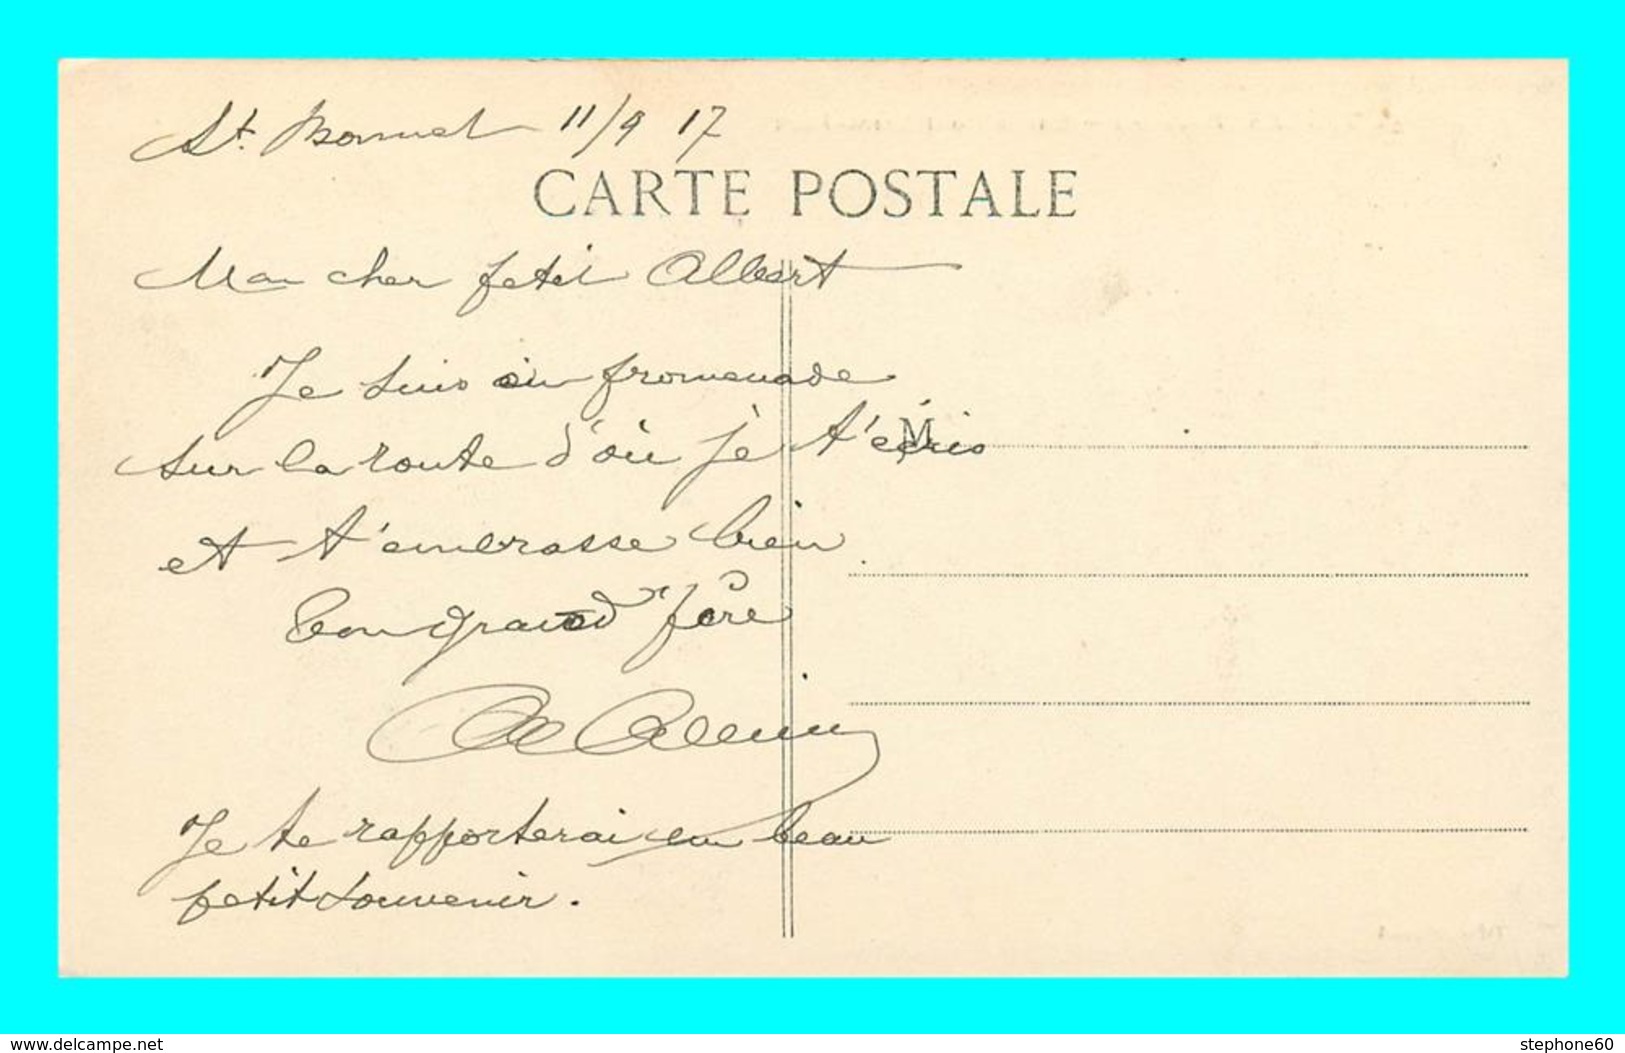 St Bonnet 11/9 17
CARTE POSTALE
Mon cher petit Albert
Je suis en promenade
sur la route d'où je t'écris
M
et t'embrasse bien
Ton grand père
Je te rapporterai un beau
petit souvenir.
www.delcampe.net
stephone60